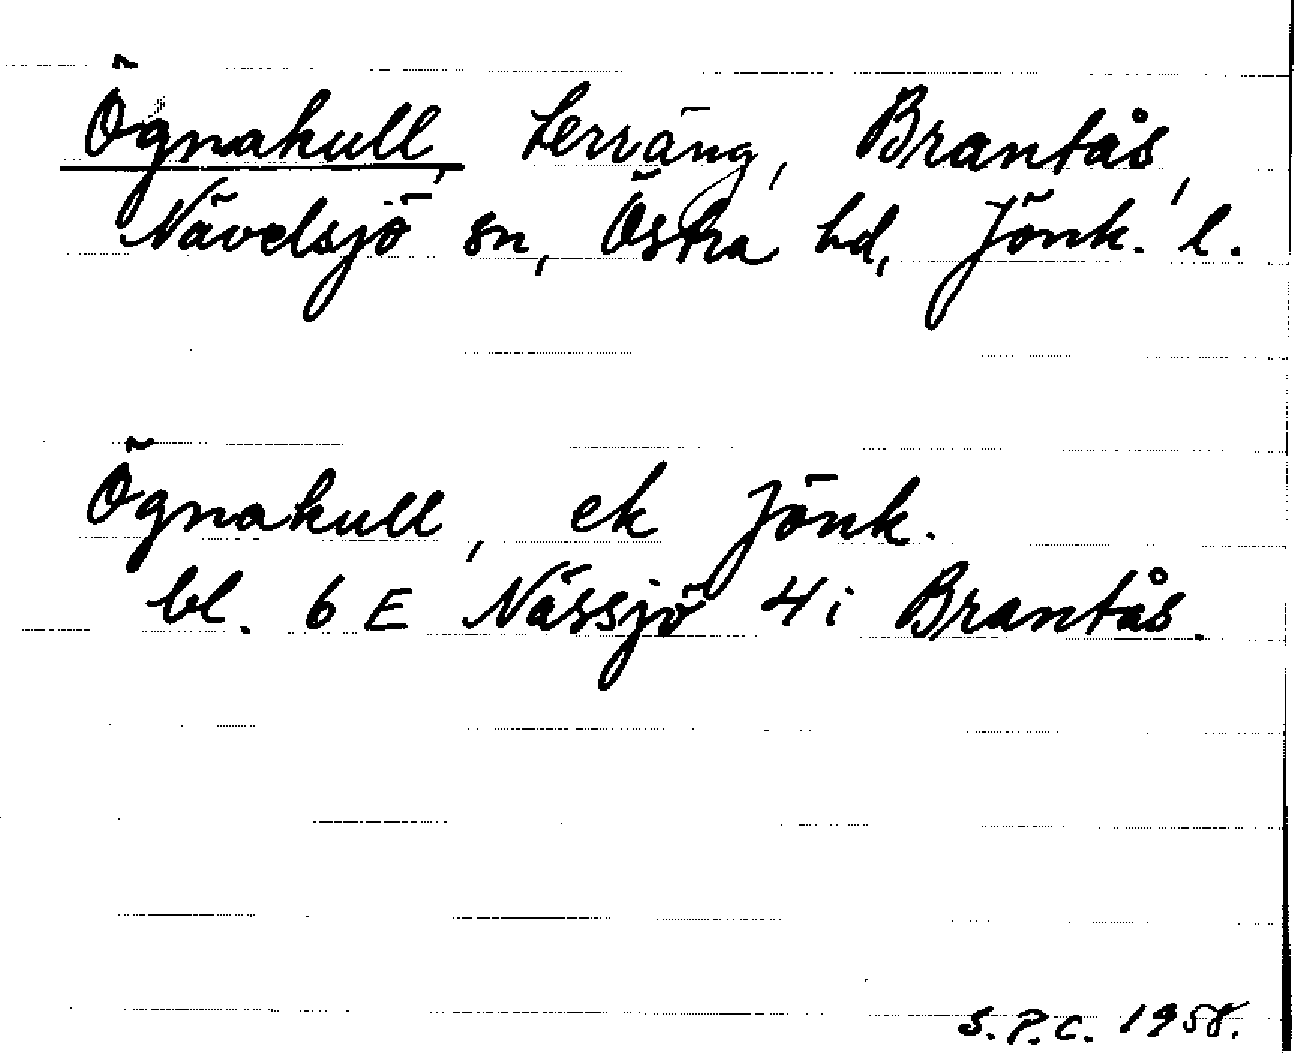 Ögnakull, terräng, Brantås,
Nävelsjö sn, Östra hd, Jönk. l.
Ögnakull, ek Jönk.
bl. 6 E Nässjö 4i Brantås.
S.P.C. 1958.